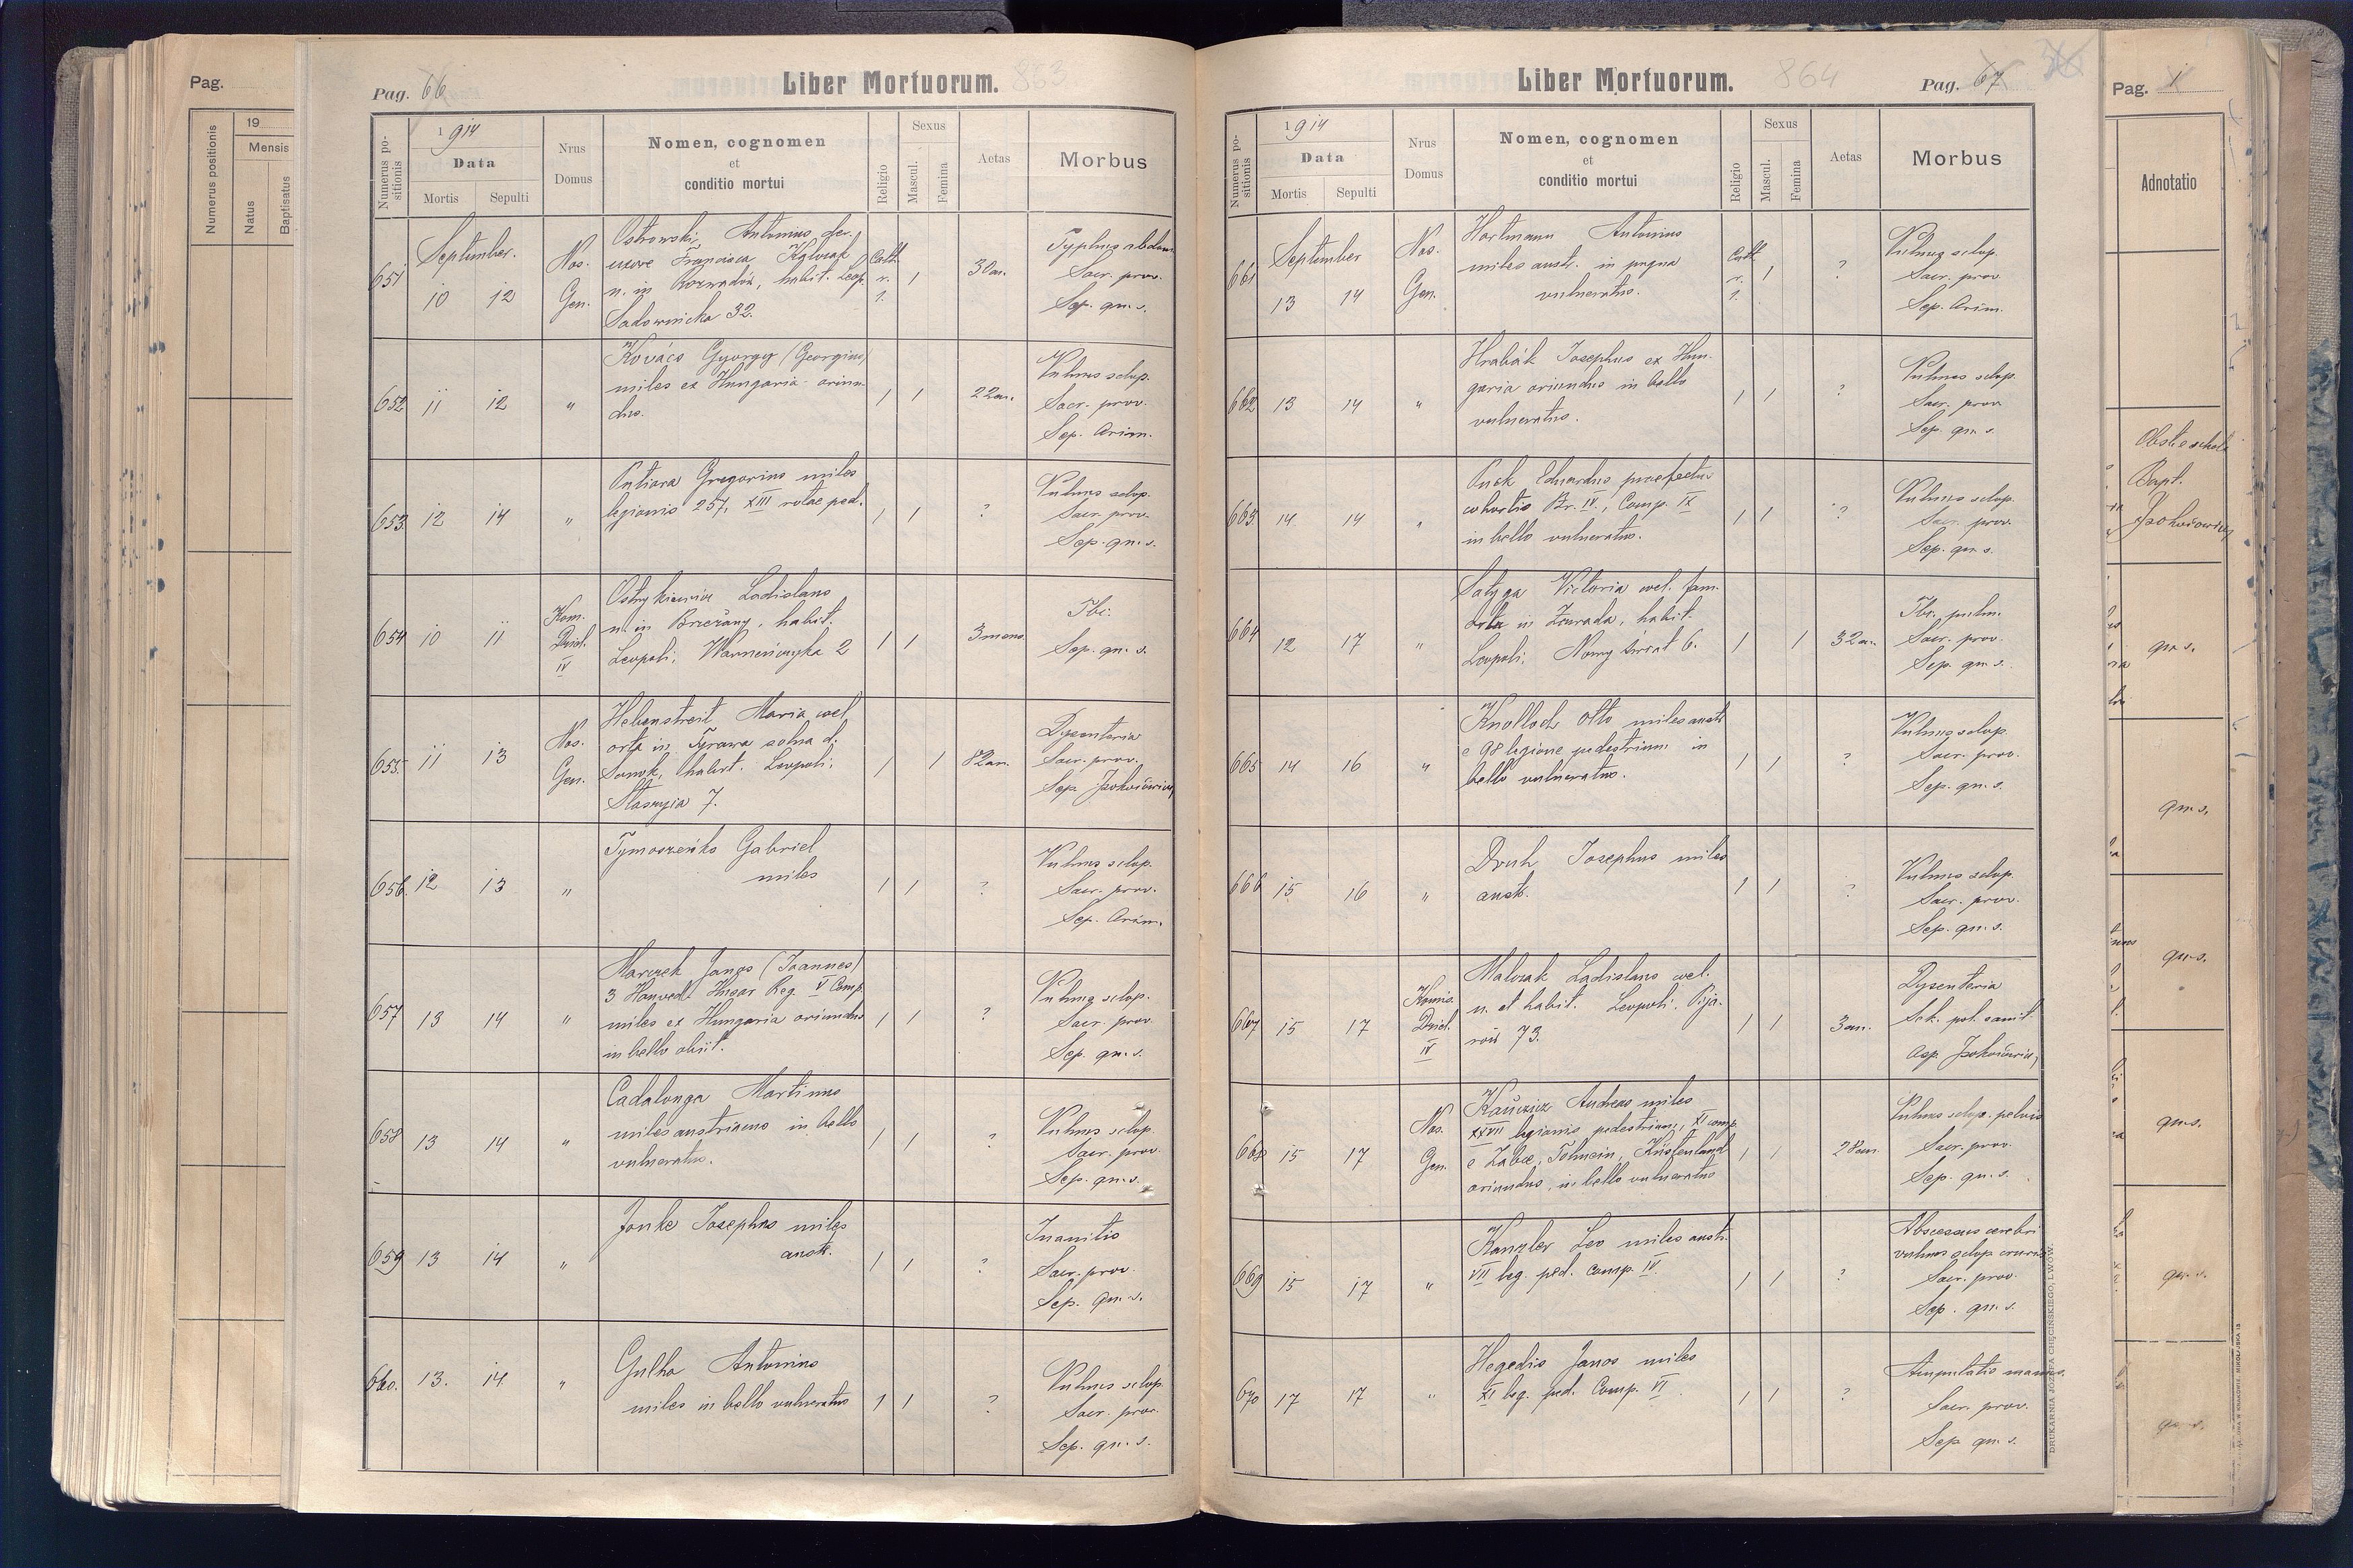 Pag.
Numerus positionis
19
Mensis
Natus
Baptisatus
Pag. 66
Liber Mortuorum. 863
Numerus positionis
1914
Data
Mortis
Sepulti
Nrus Domus
Nomen, cognomen
et
conditio mortui
Religio
Sexus
Mascul.
Femina
Aetas
Morbus
651
September.
10 12
Nos.
Gen.
Ostrowski Antonius der.
uxore Francisca
n. in Rozwadów, habit. Leop.
Sadownicka 32.
Cath.
r.
l.
1
30 an.
Typhus abdom.
Sacr. prov.
Sep. qu. s.
652 11 12 "
Kovács Gyorgy (Georgius)
miles ex Hungaria oriun-
dus.
1 1 22 an.
Vulnus sclop.
Sacr. prov.
Sep. Arim.
653 12 14 "
Putiara Gregorius miles
legionis 257, XIII rotae ped.
1 1 ?
Vulnus sclop.
Sacr. prov.
Sep. qu. s.
654 10 11
Kom.
Dziel.
IV
Ladislaus
n. in Brzeżany, habit.
Leopoli, Warneńczyka 2
1 1 3 mens.
Tbc.
Sep. qu. s.
655 11 13
Nos.
Gen.
Hebenstreit Maria coel.
orta in Tyrawa solna d.
Sanok, habit. Leopoli.
Staszyca 7.
1 1 82 an.
Dysenteria
Sacr. prov.
Sep.
656. 12 13 "
Tymoszeńko Gabriel
miles
1 1 ?
Vulnus sclop.
Sacr. prov.
Sep. Arim.
657 13 14 "
Marczek Janos (Joannes)
3 Honved Huzar Reg. V Comp.
miles ex Hungaria oriundus
in bello obiit.
1 1 ?
Vulnus sclop.
Sacr. prov.
Sep. qu. s.
658 13 14 "
Cadalonga Martinus
miles austriacus in bello
vulneratus.
1 1 ?
Vulnus sclop.
Sacr. prov.
Sep. qu. s.
659 13 14 "
Jonke Josephus miles
austr.
1 1 ?
Inanitio
Sacr. prov.
Sep. qu. s.
660. 13. 14. "
Gulha Antonius
miles in bello vulneratus
1 1 ?
Vulnus sclop.
Sacr. prov.
Sep. qu. s.
Liber Mortuorum. 864
Pag. 67
Numerus positionis
1914
Data
Mortis
Sepulti
Nrus Domus
Nomen, cognomen
et
conditio mortui
Religio
Sexus
Mascul.
Femina
Aetas
Morbus
661
September
13 14
Nos.
Gen.
Hartmann Antonius
miles austr. in pugna
vulneratus.
Cath.
r.
l.
1
?
Vulnus sclop.
Sacr. prov.
Sep. Arim.
662 13 14 "
Hrabák Josephus ex Hun-
garia oriundus in bello
vulneratus.
1 1 ?
Vulnus sclop.
Sacr. prov.
Sep. qu. s.
663 14 14 "
Puck Eduardus praefectus
cohortis Br. IV., Comp. IX
in bello vulneratus.
1 1 ?
Vulnus sclop.
Sacr. prov.
Sep. qu. s.
664 12 17 "
Satyga Victoria coel. fam.
orta in Żurada, habit.
Leopoli, Nowy świat 6.
1 1 32 an.
Tbc. pulm.
Sacr. prov.
Sep. qu. s.
665 14 16 "
Knolloch Otto miles austr.
e 98 legione pedestrium in
bello vulneratus.
1 1 ?
Vulnus sclop.
Sacr. prov.
Sep. qu. s.
666 15 16 "
Druh Josephus miles
austr.
1 1 ?
Vulnus sclop.
Sacr. prov.
Sep. qu. s.
667 15 17
Komis.
Dziel.
IV
Malczak Ladislaus coel.
n. et habit. Leopoli, Pija-
rów 73.
1 1 3 an.
Dysenteria
Sch. pol. sanit.
668 15 17
Nos.
Gen.
Andreas miles
XXVII legionis pedestrium, XI comp.
e Zabce, Tolmein, Küstenland
oriundus, in bello vulneratus
1 1 28 an.
Vulnus sclop. pelvis
Sacr. prov.
Sep. qu. s.
669 15 17 "
Kanzler Leo miles austr.
VII leg. ped. Comp. IV.
1 1 ?
Abscessus cerebri
vulnus sclop. cruris
Sacr. prov.
Sep. qu. s.
670 17 17 "
Hegedis Janos miles
XI leg. ped. Comp. VI
1 1 ?
Amputatio manus.
Sacr. prov.
Sep. qu. s.
DRUKARNIA JÓZEFA CHĘCIŃSKIEGO, LWÓW.
Pag. 1
Adnotatio
Bapt.
qu. s.
qu. s.
qu. s.
qu. s.
qu. s.
qu. s.